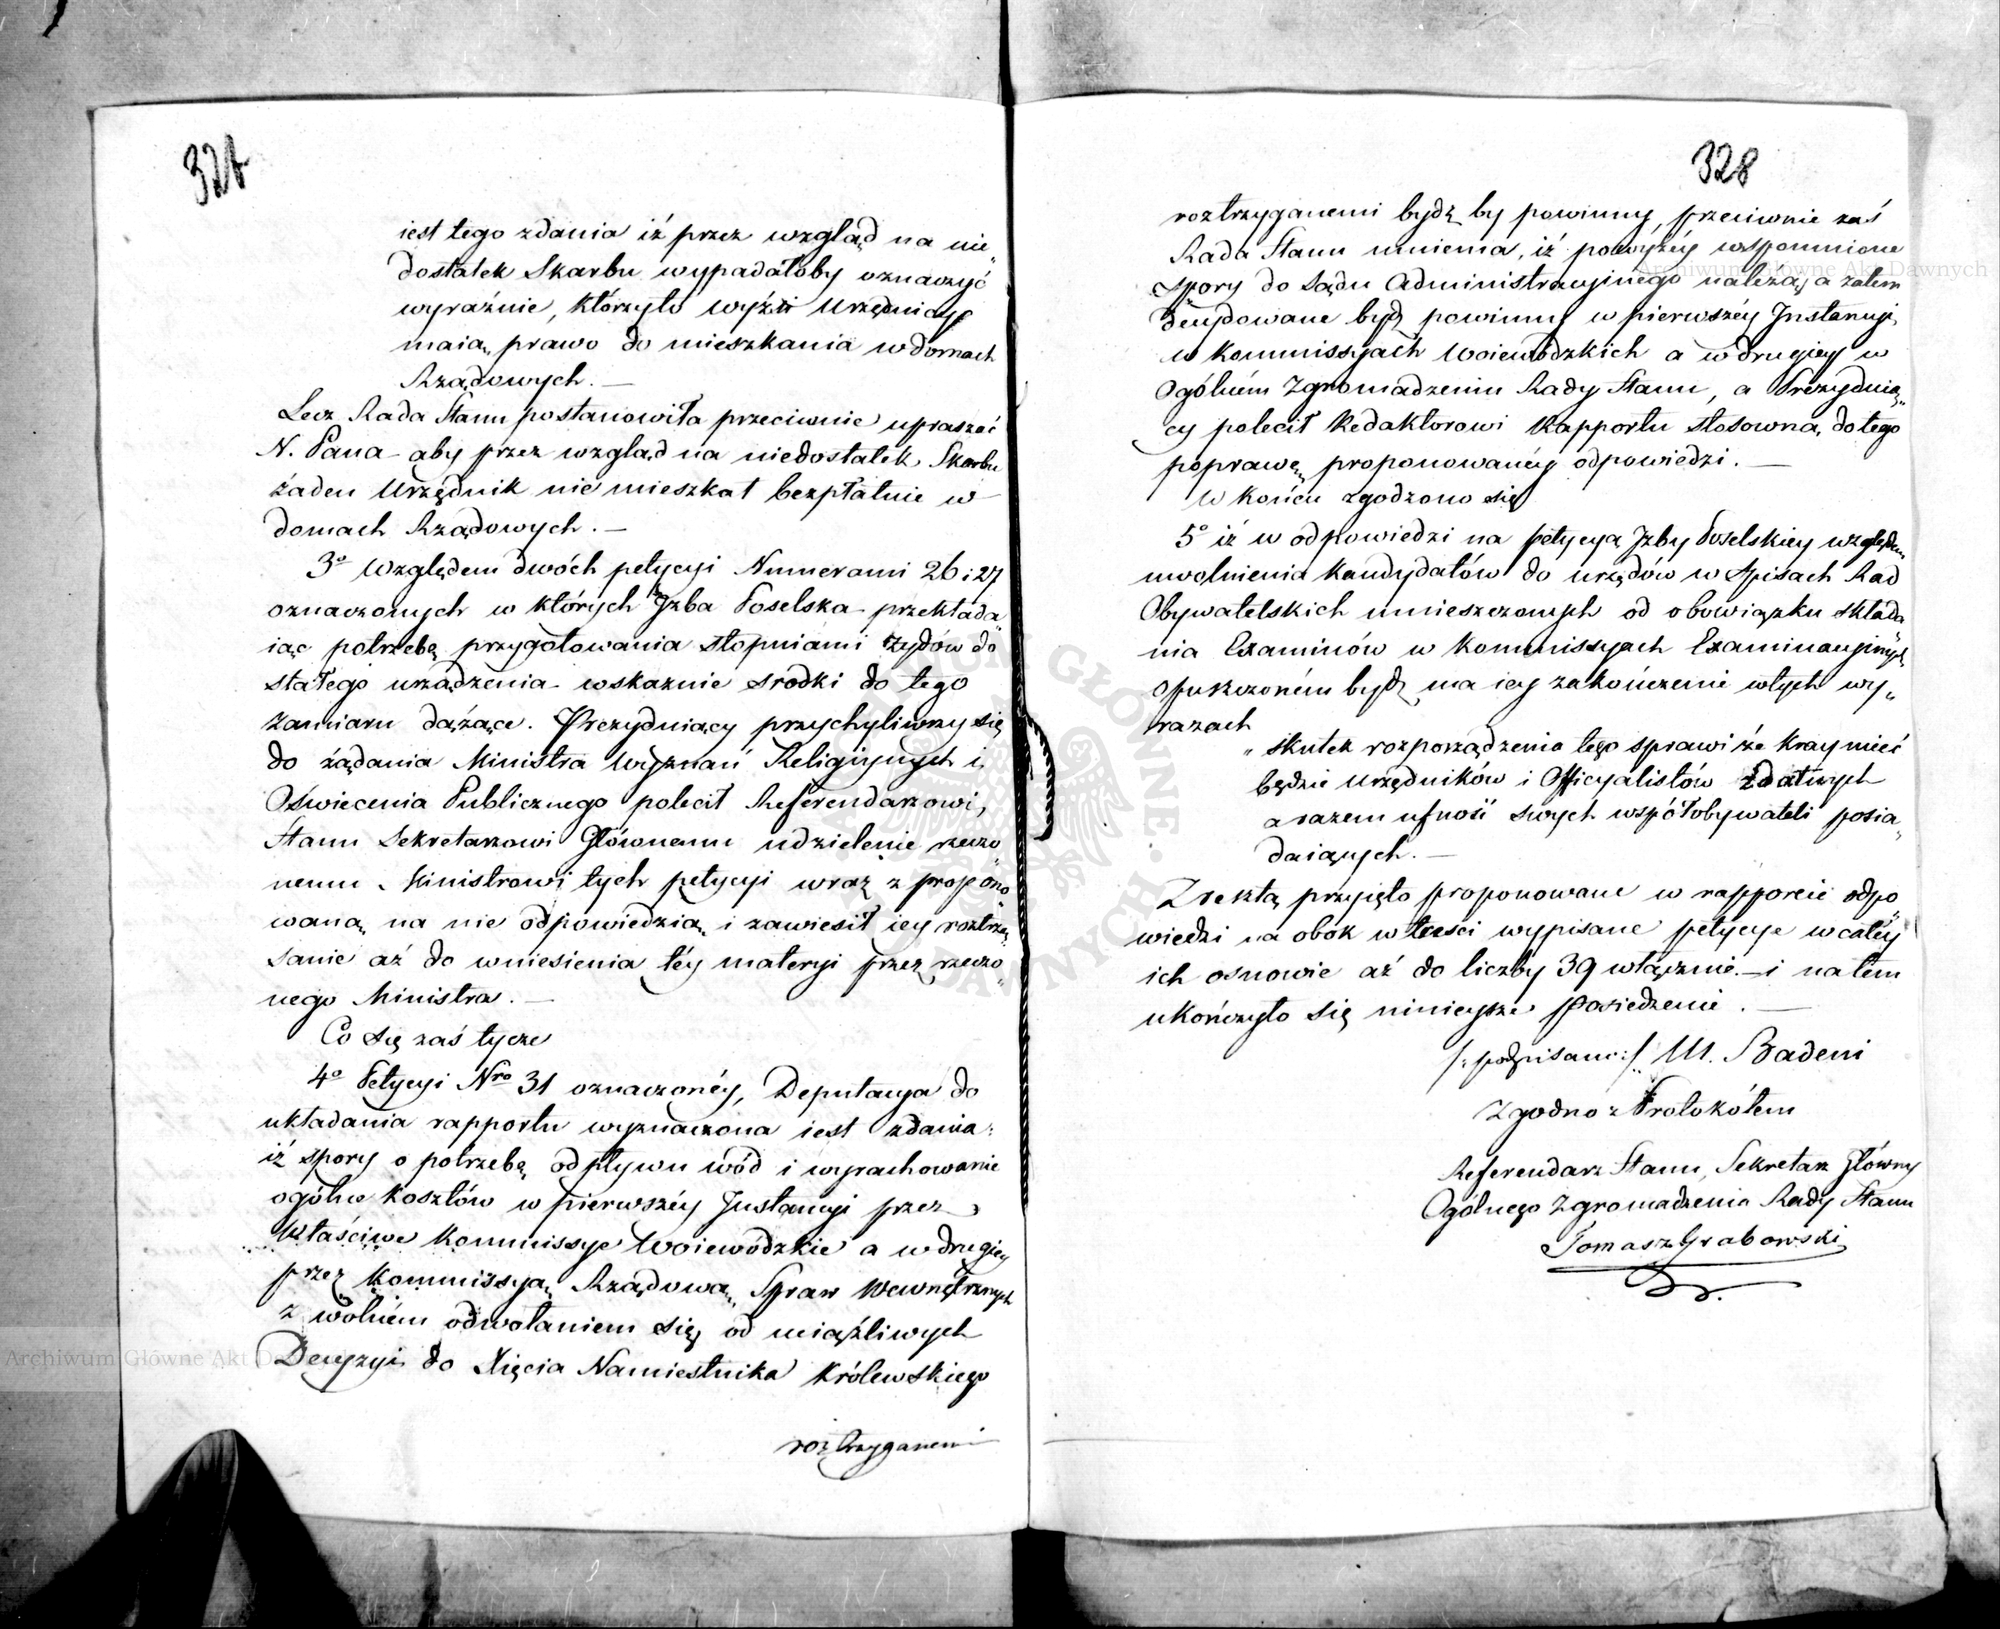 327
iest tego zdania iż przez wzgląd na nie„
dostatek Skarbu wypadałoby oznaczyć
wyraźnie, którzyto wyżsi Urzędnicy
maią prawo do mieszkania w domach
Rządowych. —
Lecz Rada Stanu postanowiła przeciwnie upraszać
N. Pana aby przez wzgląd na niedostatek Skarbu
żaden Urzędnik nie mieszkał bezpłatnie w
domach Rządowych. —
3o Względem dwóch petycyi Numerami 26 i 27
oznaczonych w których Izba Poselska przekłada„
iąc potrzebę przygotowania stopniami Żydów do
stałego urządzenia wskaznie srodki do tego
zamiaru dążące. Prezyduiący przychyliwszy się
do żądania Ministra Wyznań Religiynych i
Oświecenia Publicznego polecił Referendarzowi
Stanu Sekretarzowi Głównemu udzielenie rzeczo„
nemu Ministrowi tych petycyi wraz z propono„
waną na nie odpowiedzią i zawiesił iey roztrzą„
sanie aż do wniesienia téy materyi przez rzeczo„
nego Ministra. —
Co się zaś tycze
4o Petycyi Nro 31 oznaczonéy, Deputacya do
układania rapportu wyznaczona iest zdania:
iż spory o potrzebę odpływu wód i wyrachowanie
ogólne kosztów w pierwszéy Instancyi przez
Właściwe Kommissye Woiewódzkie a w drugiey
przez Kommissyą Rządową Spraw Wewnętrznych
z wolném odwołaniem się od uciążliwych
Decyzyi do Xięcia Namiestnika Królewskiego
roztrzyganemi
328
roztrzyganemi bydź by powinny, przeciwnie zaś
Rada Stanu mniema, iż powyżéy wspomnione
spory do Sądu Administracyinego należą, a zatem
decydowane bydź powinny w pierwszéy Instancyi
w Kommissyach Woiewódzkich a w drugiey w
Ogólném Zgromadzeniu Rady Stanu, a Prezyduią„
cy polecił Redaktorowi Rapportu stosowną do tego
poprawę proponowanéy odpowiedzi. —
W końcu zgodzono się
5o iż w odpowiedzi na petycyą Izby Poselskiey względem
uwolnienia Kandydatów do urzędów w Spisach Rad
Obywatelskich umieszczonych od obowiązku składa„
nia Examinów w Kommissyach Examinacyinych
opuszczoném bydź ma iey zakończenie w tych wy„
razach
„skutek rozporządzenia tego sprawi że kray mieć
będzie Urzędników i Officyalistów zdatnych
a razem ufność swych współobywateli posia„
daiących. —
Zresztą przyięto proponowane w rapporcie odpo„
wiedzi na obok w treści wypisane petycye w całéy
ich osnowie aż do liczby 39 włącznie. — i na tém
ukończyło się ninieysze Posiedzenie. —
/: podpisano :/ M. Badeni
Zgodno z Protokółem
Referendarz Stanu, Sekretarz Główny
Ogólnego Zgromadzenia Rady Stanu
Tomasz Grabowski
Archiwum Główne Akt Dawnych
Archiwum Główne Akt Dawnych